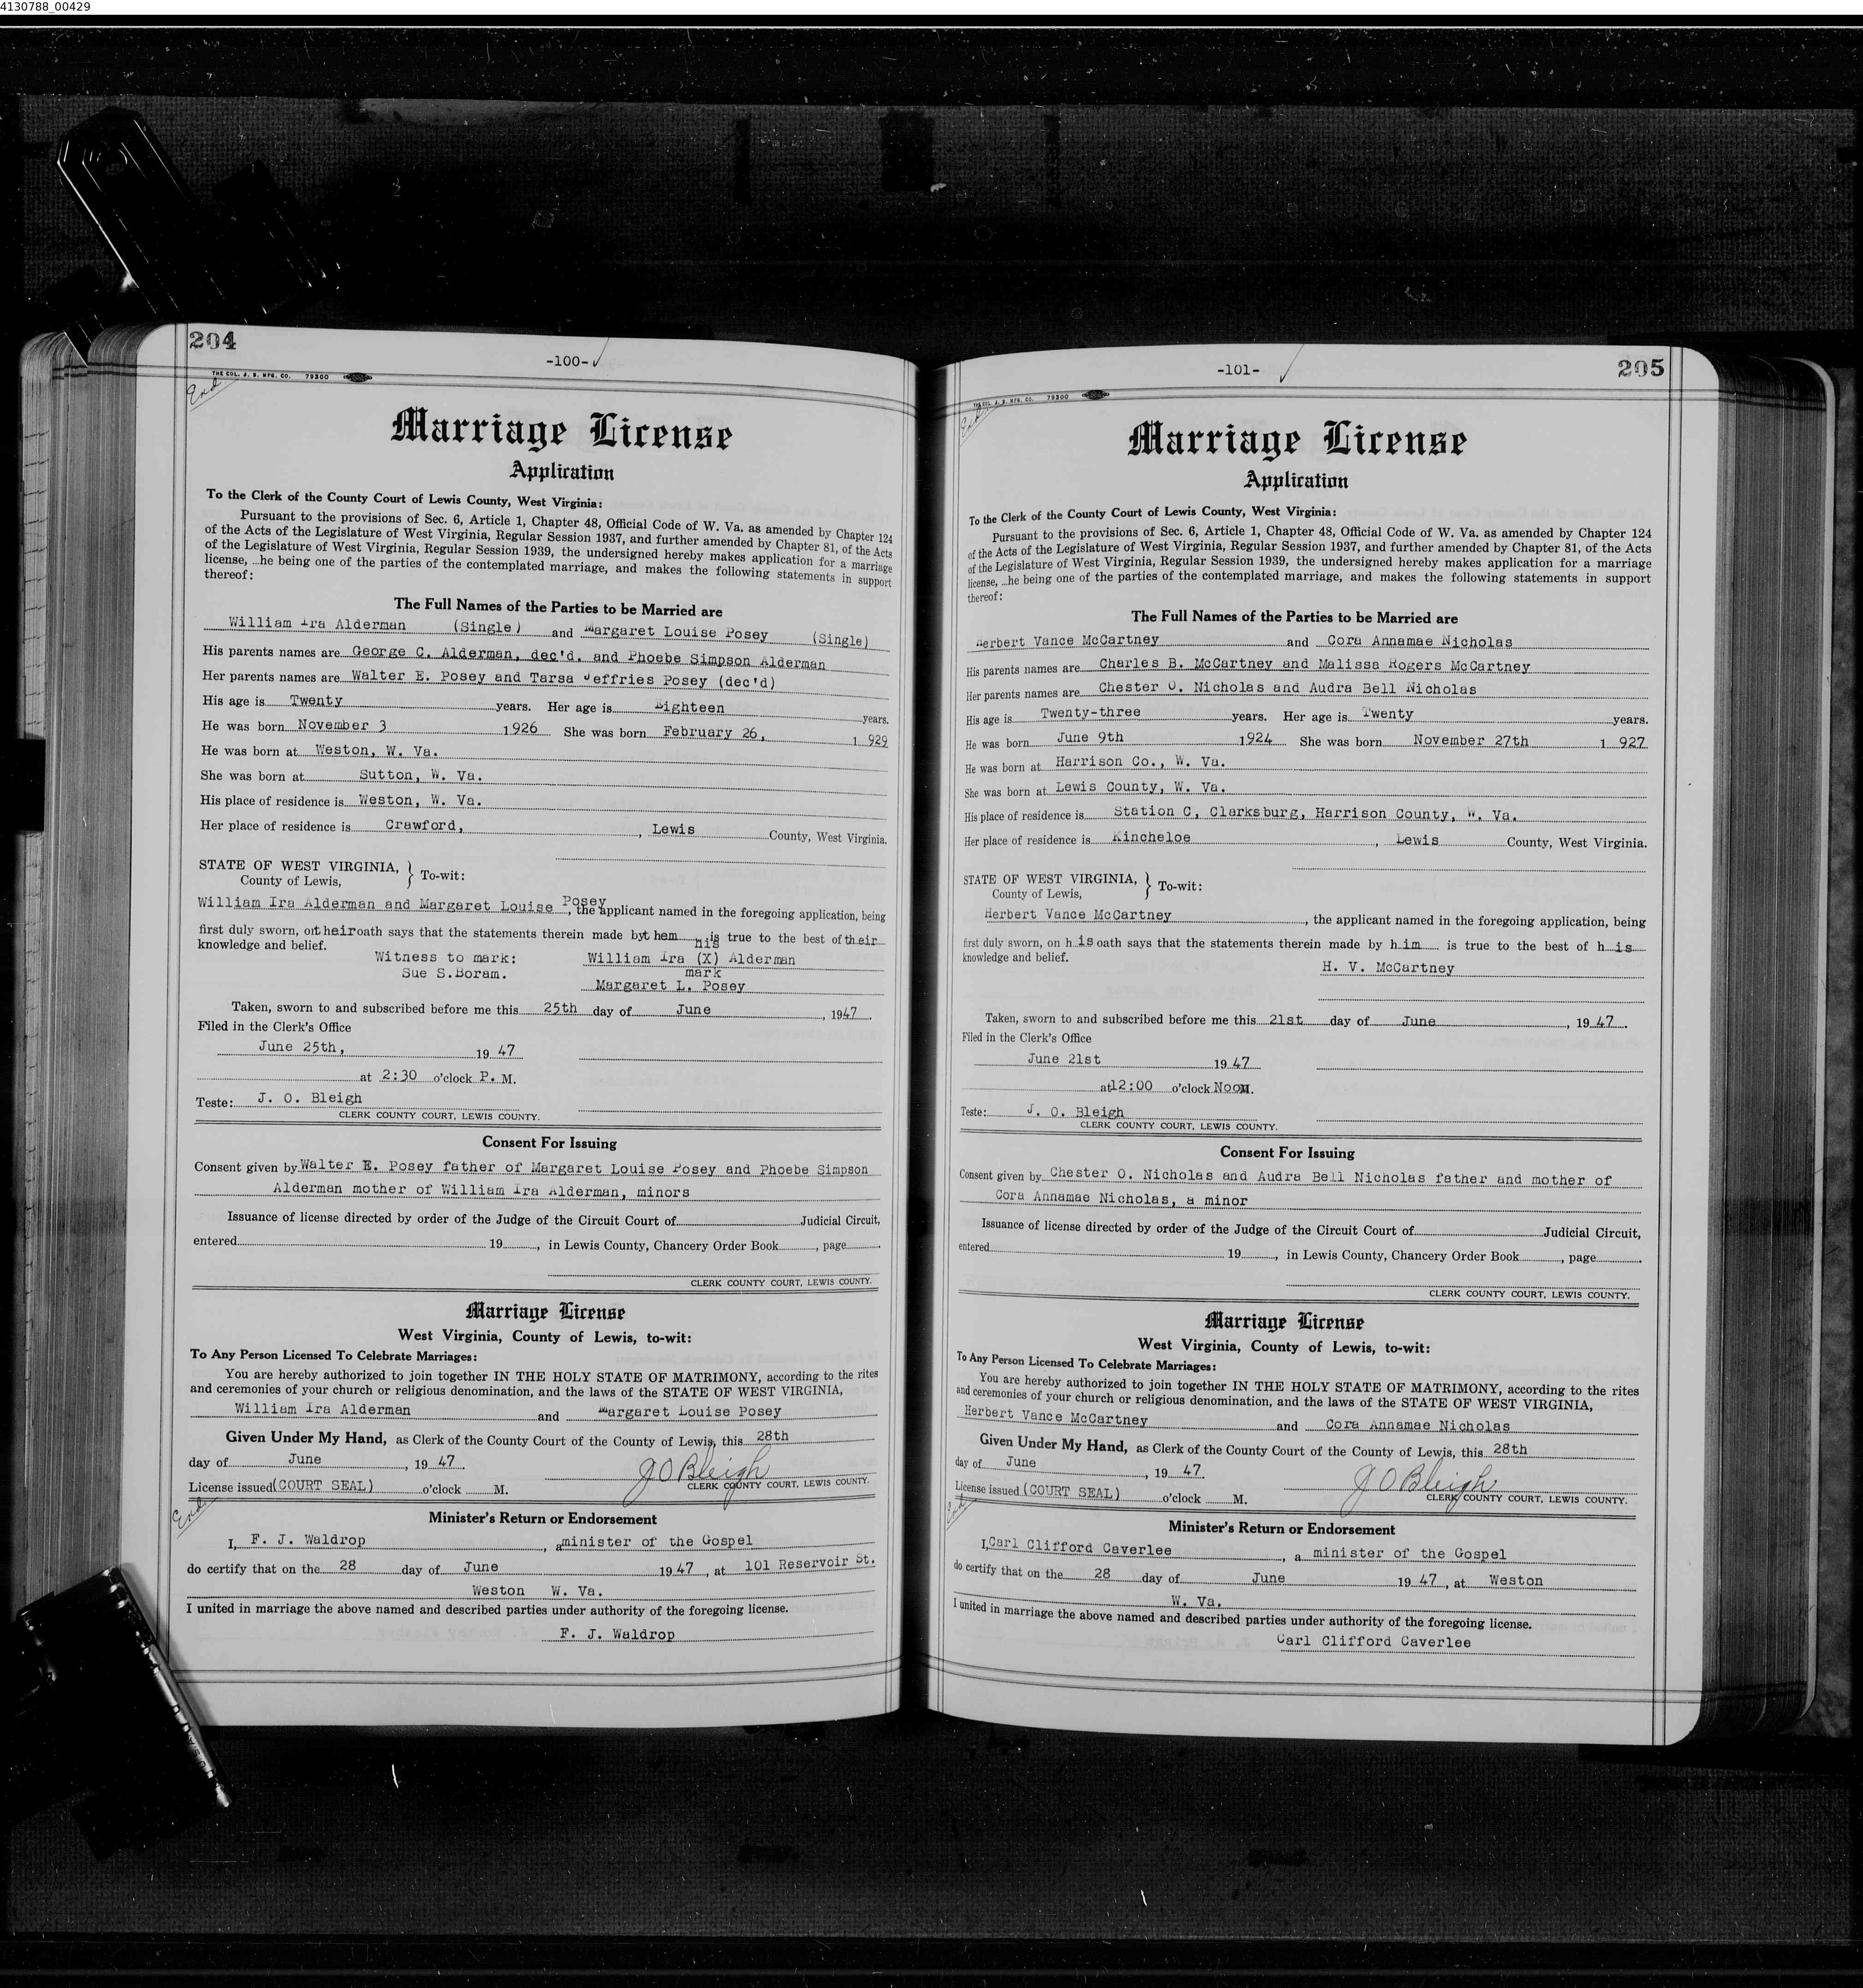 4130788_00429
204
-100-
End
THE COL. A. B. MFG. CO. 79300
Marriage License
Application
To the Clerk of the County Court of Lewis County, West Virginia:
Pursuant to the provisions of Sec. 6, Article 1, Chapter 48, Official Code of W. Va. as amended by Chapter 124
of the Acts of the Legislature of West Virginia, Regular Session 1937, and further amended by Chapter 81, of the Acts
of the Legislature of West Virginia, Regular Session 1939, the undersigned hereby makes application for a marriage
license, ...he being one of the parties of the contemplated marriage, and makes the following statements in support
thereof:
The Full Names of the Parties to be Married are
William Ira Alderman (Single) and Margaret Louise Posey (Single)
His parents names are George C. Alderman, dec'd. and Phoebe Simpson Alderman
Her parents names are Walter E. Posey and Tarsa Jeffries Posey (dec'd)
His age is Twenty years. Her age is Eighteen years.
He was born November 3 1926 She was born February 26, 1 929
He was born at Weston, W. Va.
She was born at Sutton, W. Va.
His place of residence is Weston, W. Va.
Her place of residence is Crawford, , Lewis County, West Virginia.
STATE OF WEST VIRGINIA,
County of Lewis, } To-wit:
William Ira Alderman and Margaret Louise Posey, the applicant named in the foregoing application, being
first duly sworn, on their oath says that the statements therein made by them is true to the best of their
knowledge and belief.
his
Witness to mark: William Ira (X) Alderman
Sue S.Boram. mark
Margaret L. Posey
Taken, sworn to and subscribed before me this 25th day of June , 1947.
Filed in the Clerk's Office
June 25th, 19 47
at 2:30 o'clock P. M.
Teste: J. O. Bleigh
CLERK COUNTY COURT, LEWIS COUNTY.
Consent For Issuing
Consent given by Walter E. Posey father of Margaret Louise Posey and Phoebe Simpson
Alderman mother of William Ira Alderman, minors
Issuance of license directed by order of the Judge of the Circuit Court of Judicial Circuit,
entered 19 , in Lewis County, Chancery Order Book , page .
CLERK COUNTY COURT, LEWIS COUNTY.
Marriage License
West Virginia, County of Lewis, to-wit:
To Any Person Licensed To Celebrate Marriages:
You are hereby authorized to join together IN THE HOLY STATE OF MATRIMONY, according to the rites
and ceremonies of your church or religious denomination, and the laws of the STATE OF WEST VIRGINIA,
William Ira Alderman and Margaret Louise Posey
Given Under My Hand, as Clerk of the County Court of the County of Lewis, this 28th
day of June , 19 47.
J O Bleigh
License issued (COURT SEAL) o'clock M. CLERK COUNTY COURT, LEWIS COUNTY.
End
Minister's Return or Endorsement
I, F. J. Waldrop , a minister of the Gospel
do certify that on the 28 day of June 19 47, at 101 Reservoir St.
Weston W. Va.
I united in marriage the above named and described parties under authority of the foregoing license.
F. J. Waldrop
205
-101-
End
THE COL. A. B. MFG. CO. 79300
Marriage License
Application
To the Clerk of the County Court of Lewis County, West Virginia:
Pursuant to the provisions of Sec. 6, Article 1, Chapter 48, Official Code of W. Va. as amended by Chapter 124
of the Acts of the Legislature of West Virginia, Regular Session 1937, and further amended by Chapter 81, of the Acts
of the Legislature of West Virginia, Regular Session 1939, the undersigned hereby makes application for a marriage
license, ...he being one of the parties of the contemplated marriage, and makes the following statements in support
thereof:
The Full Names of the Parties to be Married are
Herbert Vance McCartney and Cora Annamae Nicholas
His parents names are Charles B. McCartney and Malissa Rogers McCartney
Her parents names are Chester O. Nicholas and Audra Bell Nicholas
His age is Twenty-three years. Her age is Twenty years.
He was born June 9th 1924 She was born November 27th 1 927
He was born at Harrison Co., W. Va.
She was born at Lewis County, W. Va.
His place of residence is Station C, Clarksburg, Harrison County, W. Va.
Her place of residence is Kincheloe , Lewis County, West Virginia.
STATE OF WEST VIRGINIA,
County of Lewis, } To-wit:
Herbert Vance McCartney , the applicant named in the foregoing application, being
first duly sworn, on his oath says that the statements therein made by him is true to the best of his
knowledge and belief.
H. V. McCartney
Taken, sworn to and subscribed before me this 21st day of June , 19 47.
Filed in the Clerk's Office
June 21st 19 47
at 12:00 o'clock Noon M.
Teste: J. O. Bleigh
CLERK COUNTY COURT, LEWIS COUNTY.
Consent For Issuing
Consent given by Chester O. Nicholas and Audra Bell Nicholas father and mother of
Cora Annamae Nicholas, a minor
Issuance of license directed by order of the Judge of the Circuit Court of Judicial Circuit,
entered 19 , in Lewis County, Chancery Order Book , page .
CLERK COUNTY COURT, LEWIS COUNTY.
Marriage License
West Virginia, County of Lewis, to-wit:
To Any Person Licensed To Celebrate Marriages:
You are hereby authorized to join together IN THE HOLY STATE OF MATRIMONY, according to the rites
and ceremonies of your church or religious denomination, and the laws of the STATE OF WEST VIRGINIA,
Herbert Vance McCartney and Cora Annamae Nicholas
Given Under My Hand, as Clerk of the County Court of the County of Lewis, this 28th
day of June , 19 47.
J O Bleigh
License issued (COURT SEAL) o'clock M. CLERK COUNTY COURT, LEWIS COUNTY.
End
Minister's Return or Endorsement
I, Carl Clifford Caverlee , a minister of the Gospel
do certify that on the 28 day of June 19 47, at Weston
W. Va.
I united in marriage the above named and described parties under authority of the foregoing license.
Carl Clifford Caverlee